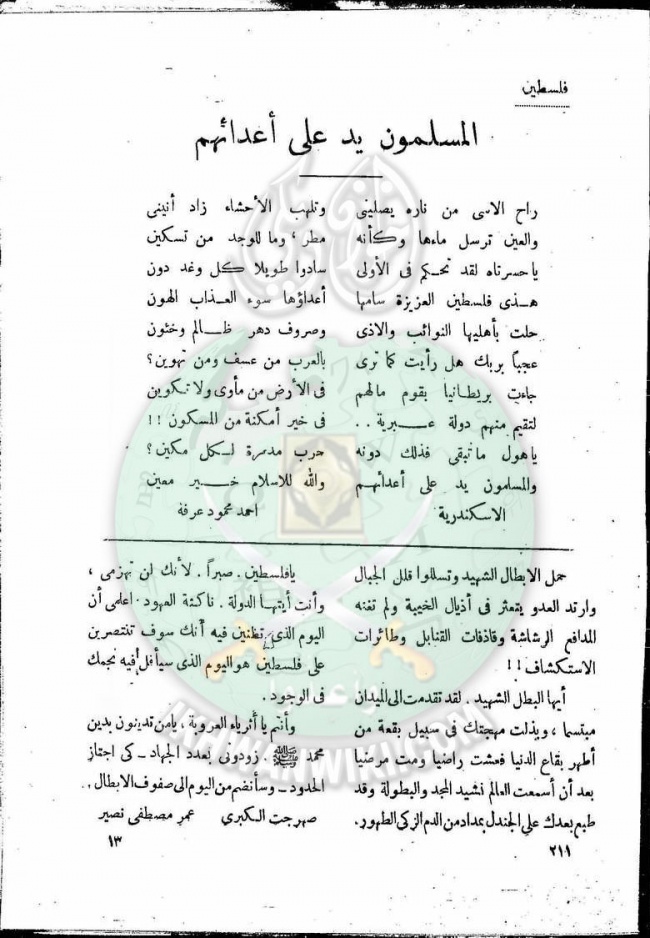 فلسطين
المسلمون يد على أعدائهم
راح الاسى من ناره يصلينى وتلهب الأحشاء زاد أنينى
والعين ترسل ماءها وكأنه مطر، وما للوجد من تسكين
ياحسرتاه لقد تحكم فى الأولى سادوا طويلا كل وغد دون
هذى فلسطين العزيزة سامها أعداؤها سوء العذاب الهون
حلت بأهليها النوائب والاذى وصروف دهر ظالم وخئون
عجباً بربك هل رأيت كما ترى بالعرب من عسف ومن تهوين؟
جاءت بريطانيا بقوم مالهم فى الأرض من مأوى ولا تكوين
لتقيم منهم دولة عبرية .. فى خير أمكنة من المسكون !!
ياهول ما تبقى فذلك دونه حرب مدمرة لكل مكين؟
والمسلمون يد على أعدائهم والله للاسلام خير معين
الاسكندرية احمد محمود عرفة
حمل الابطال الشهيد وتسللوا قلل الجبال
وارتد العدو يتعثر فى أذيال الخيبة ولم تغنه
المدافع الرشاشة وقاذفات القنابل وطائرات
الاستكشاف !!
أيها البطل الشهيد . لقد تقدمت الى الميدان
مبتسما ، وبذلت مهجتك فى سبيل بقعة من
أطهر بقاع الدنيا فعشت راضيا ومت مرضيا
بعد أن أسمعت العالم نشيد المجد والبطولة وقد
طبع بعدك على الجندل بمداد من الدم الزكى الطهور.
يافلسطين . صبراً . لأنك لن تهزمى ،
وأنت أيتها الدولة . ناكثة العهود . اعلمى أن
اليوم الذى تظنين فيه أنك سوف تنتصرين
على فلسطين هو اليوم الذى سيأفل فيه نجمك
فى الوجود .
وأنتم يا أثرياء العروبة ، يامن تدينون بدين
محمد ﷺ . زودونى بعدد الجهاد - كى اجتاز
الحدود - وسأنضم من اليوم الى صفوف الابطال .
صهرجت الكبرى عمر مصطفى نصير
٢١١ ١٣
IKHWANWIKI.COM